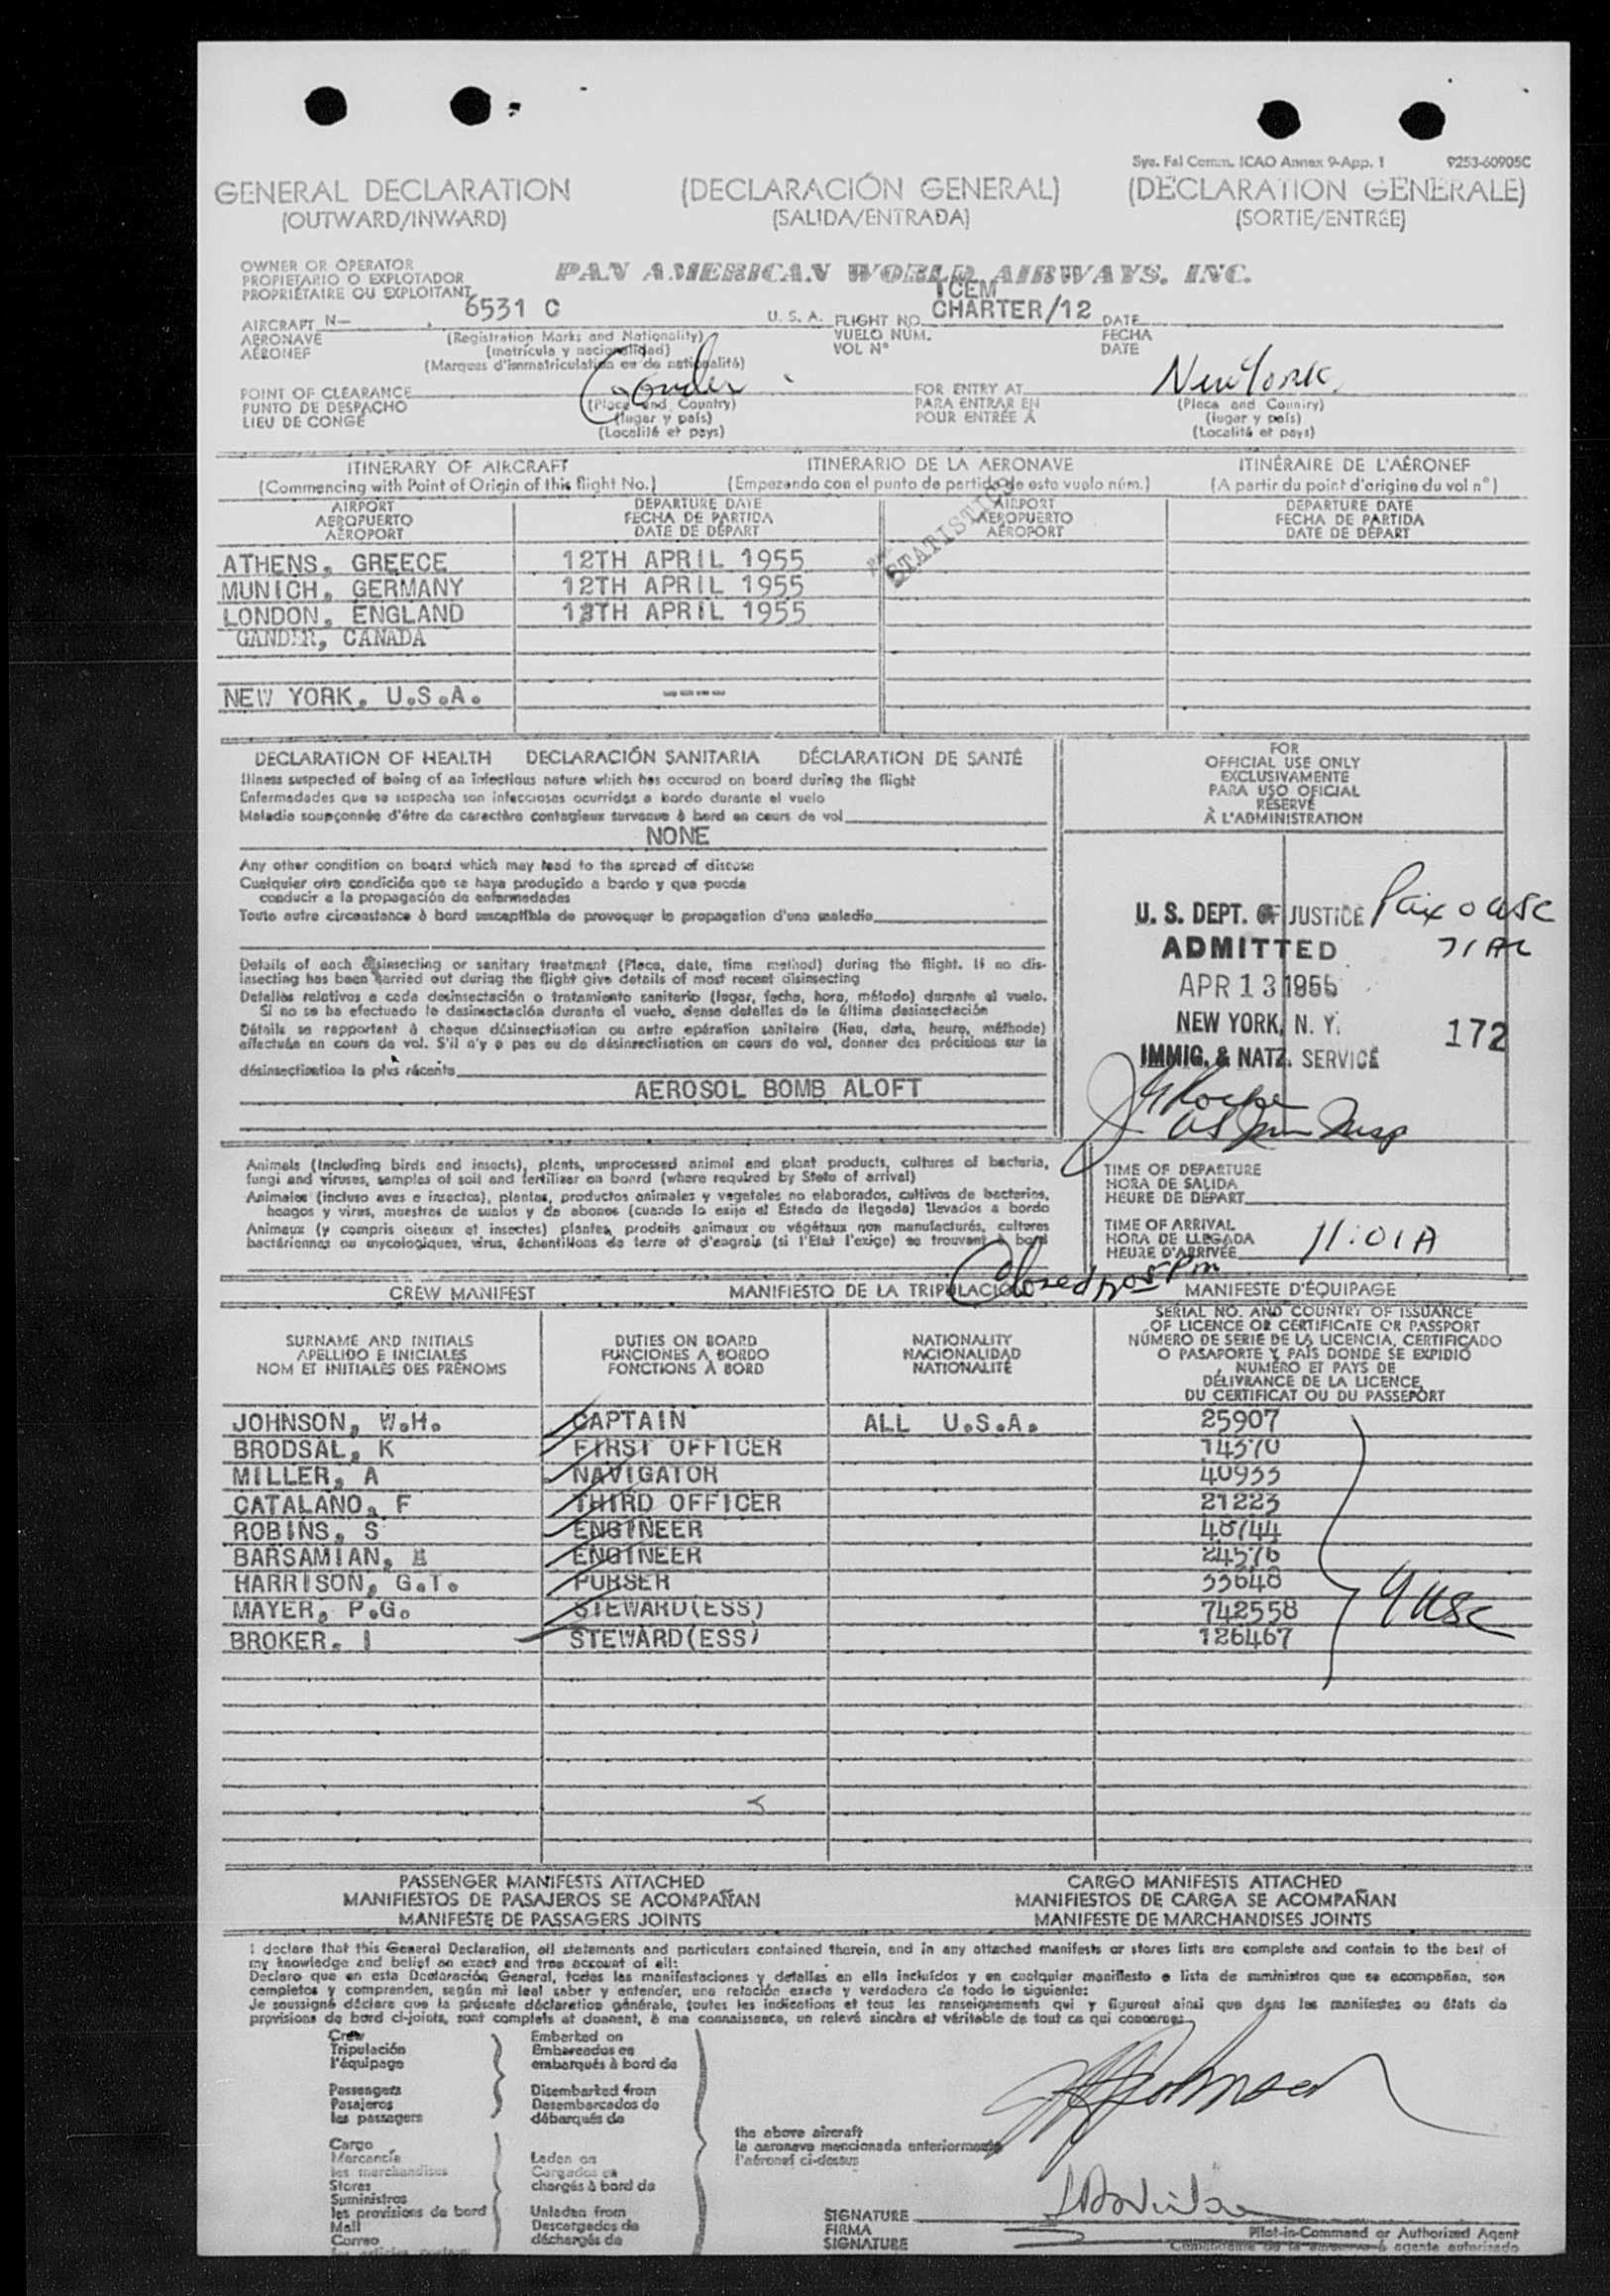 Sys. Fal Comm. ICAO Annex 9-App. 1 9253-60905C
GENERAL DECLARATION (DECLARACIÓN GENERAL) (DÉCLARATION GÉNÉRALE)
(OUTWARD/INWARD) (SALIDA/ENTRADA) (SORTIE/ENTRÉE)
OWNER OR OPERATOR
PROPIETARIO O EXPLOTADOR
PROPRIÉTAIRE OU EXPLOITANT
PAN AMERICAN WORLD AIRWAYS, INC.
ICEM
AIRCRAFT N- 6531 C U. S. A. FLIGHT NO. CHARTER/12 DATE
AERONAVE (Registration Marks and Nationality) VUELO NUM. FECHA
AÉRONEF (matrícula y nacionalidad) VOL N° DATE
(Marques d'immatriculation ou de nationalité)
POINT OF CLEARANCE Gander FOR ENTRY AT New York
PUNTO DE DESPACHO (Place and Country) PARA ENTRAR EN (Place and Country)
LIEU DE CONGÉ (lugar y país) POUR ENTRÉE À (lugar y país)
(Localité et pays) (Localité et pays)
ITINERARY OF AIRCRAFT ITINERARIO DE LA AERONAVE ITINÉRAIRE DE L'AÉRONEF
(Commencing with Point of Origin of this flight No.) (Empezando con el punto de partida de este vuelo núm.) (A partir du point d'origine du vol n°)
AIRPORT DEPARTURE DATE AIRPORT DEPARTURE DATE
AEROPUERTO FECHA DE PARTIDA AEROPUERTO FECHA DE PARTIDA
AÉROPORT DATE DE DÉPART AÉROPORT DATE DE DÉPART
STATISTICS
ATHENS, GREECE 12TH APRIL 1955
MUNICH, GERMANY 12TH APRIL 1955
LONDON, ENGLAND 13TH APRIL 1955
GANDER, CANADA
NEW YORK, U.S.A. ----
DECLARATION OF HEALTH DECLARACIÓN SANITARIA DÉCLARATION DE SANTÉ
Illness suspected of being of an infectious nature which has occured on board during the flight
Enfermedades que se sospecha son infecciosas ocurridas a bordo durante el vuelo
Maladie soupçonnée d'être de caractère contagieux survenue à bord en cours de vol
NONE
Any other condition on board which may lead to the spread of disease
Cualquier otra condición que se haya producido a bordo y que pueda
conducir a la propagación de enfermedades
Toute autre circonstance à bord susceptible de provoquer la propagation d'une maladie
Details of each disinsecting or sanitary treatment (Place, date, time method) during the flight. If no dis-
insecting has been carried out during the flight give details of most recent disinsecting
Detalles relativos a cada desinsectación o tratamiento sanitario (lugar, fecha, hora, método) durante el vuelo.
Si no se ha efectuado la desinsectación durante el vuelo, dense detalles de la última desinsectación
Détails se rapportent à chaque désinsectisation ou autre opération sanitaire (lieu, date, heure, méthode)
effectuée en cours de vol. S'il n'y a pas eu de désinsectisation en cours de vol, donner des précisions sur la
désinsectisation la plus récente
AEROSOL BOMB ALOFT
FOR
OFFICIAL USE ONLY
EXCLUSIVAMENTE
PARA USO OFICIAL
RÉSERVÉ
À L'ADMINISTRATION
U. S. DEPT. OF JUSTICE Pax 0 USC
ADMITTED 71 AL
APR 13 1955
NEW YORK, N. Y. 172
IMMIG. & NATZ. SERVICE
Animals (including birds and insects), plants, unprocessed animal and plant products, cultures of bacteria,
fungi and viruses, samples of soil and fertilizer on board (where required by State of arrival)
Animales (incluso aves e insectos), plantas, productos animales y vegetales no elaborados, cultivos de bacterias,
hongos y virus, muestras de suelos y de abonos (cuando lo exija el Estado de llegada) llevados a bordo
Animaux (y compris oiseaux et insectes) plantes, produits animaux ou végétaux non manufacturés, cultures
bactériennes ou mycologiques, virus, échantillons de terre et d'engrais (si l'Etat l'exige) se trouvant à bord
TIME OF DEPARTURE
HORA DE SALIDA
HEURE DE DÉPART
TIME OF ARRIVAL
HORA DE LLEGADA
HEURE D'ARRIVÉE 11:01A
Closed 1205 Pm
CREW MANIFEST MANIFIESTO DE LA TRIPULACION MANIFESTE D'ÉQUIPAGE
SURNAME AND INITIALS
APELLIDO E INICIALES
NOM ET INITIALES DES PRÉNOMS
DUTIES ON BOARD
FUNCIONES A BORDO
FONCTIONS À BORD
NATIONALITY
NACIONALIDAD
NATIONALITÉ
SERIAL NO. AND COUNTRY OF ISSUANCE
OF LICENCE OR CERTIFICATE OR PASSPORT
NÚMERO DE SERIE DE LA LICENCIA, CERTIFICADO
O PASAPORTE Y PAÍS DONDE SE EXPIDIÓ
NUMÉRO ET PAYS DE
DÉLIVRANCE DE LA LICENCE,
DU CERTIFICAT OU DU PASSEPORT
JOHNSON, W.H. CAPTAIN ALL U.S.A. 25907
BRODSAL, K FIRST OFFICER 14370
MILLER, A NAVIGATOR 40933
CATALANO, F THIRD OFFICER 21223
ROBINS, S ENGINEER 48744
BARSAMIAN, E ENGINEER 24576
HARRISON, G.T. PURSER 33648
MAYER, P.G. STEWARD(ESS) 742558
BROKER, I STEWARD(ESS) 126467
9 USC
PASSENGER MANIFESTS ATTACHED CARGO MANIFESTS ATTACHED
MANIFIESTOS DE PASAJEROS SE ACOMPAÑAN MANIFIESTOS DE CARGA SE ACOMPAÑAN
MANIFESTE DE PASSAGERS JOINTS MANIFESTE DE MARCHANDISES JOINTS
I declare that this General Declaration, all statements and particulars contained therein, and in any attached manifests or stores lists are complete and contain to the best of
my knowledge and belief an exact and true account of all:
Declaro que en esta Declaración General, todas las manifestaciones y detalles en ella incluídos y en cualquier manifiesto o lista de suministros que se acompañan, son
completos y comprenden, según mi leal saber y entender, una relación exacta y verdadera de todo lo siguiente:
Je soussigné déclare que la présente déclaration générale, toutes les indications et tous les renseignements qui y figurent ainsi que dans les manifestes ou états de
provisions de bord ci-joints, sont complets et donnent, à ma connaissance, un relevé sincère et véritable de tout ce qui concerne:
Crew Embarked on
Tripulación Embarcados en
l'équipage embarqués à bord de
Passengers Disembarked from
Pasajeros Desembarcados de
les passagers débarqués de
the above aircraft
la aeronave mencionada anteriormente
l'aéronef ci-dessus
Cargo
Mercancía Laden on
les marchandises Cargados en
Stores chargés à bord de
Suministros
les provisions de bord Unladen from
Mail Descargados de
Correo déchargés de
SIGNATURE
FIRMA
SIGNATURE
Pilot-in-Command or Authorized Agent
Comandante de la aeronave o agente autorizado